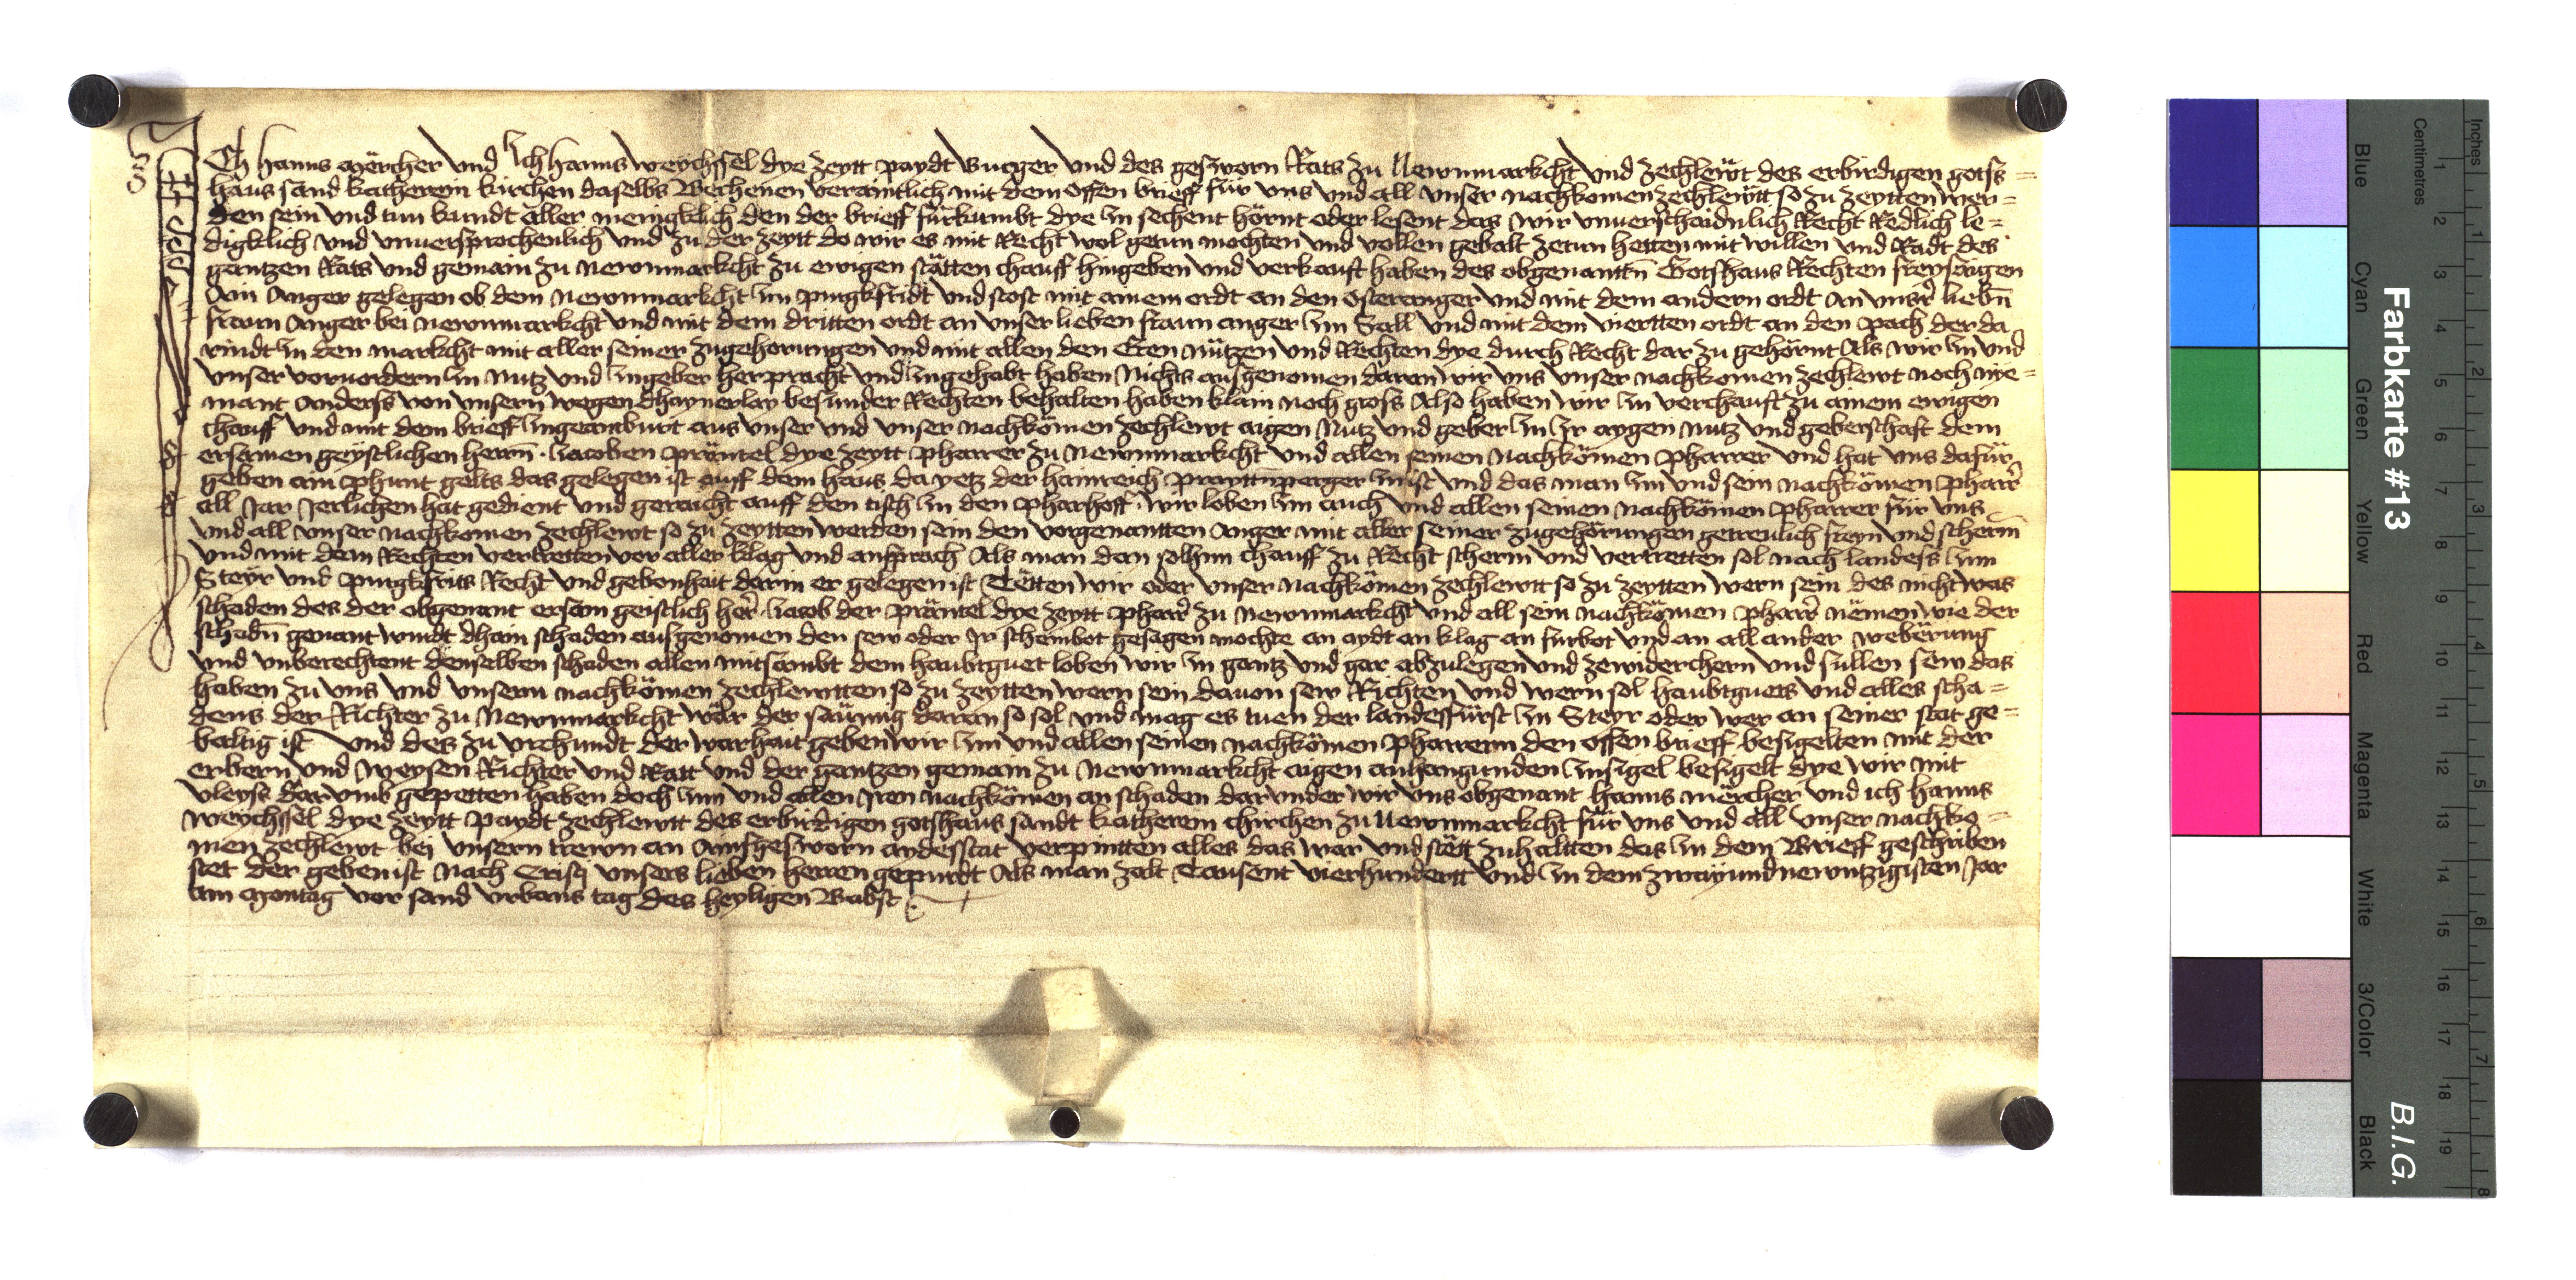 Ich hanns Mörcher vnd Ich hanns weychssel dye zeytt paydt Burger vnd des geszworn Rats zu Newnmarkcht vnd zechlewt des erbirdigen gotss=
haus sand katherein kirchen daselbs Bechenen veraintlich mit dem offen brieff für vns vnd all vnser nachkomen zechlewtt so zu zeytten wer=
den sein vnd tun kundt aller menigklich den der brieff fürkumbt dye Im sechent hörnt oder lesent das wir vnuerschaidnlich Recht Redlich le=
digklich vnd vnuersprochenlich vnd zu der zeytt do wir es mit Recht wol getun mochten vnd vollen gebalt zetun hetten mit willen vnd Radt des
gantzen Rats vnd gemain zu newnmarkcht zu ewigen stätten chauff hingeben vnd verkauft haben des obgenanttn Gotshaus Rechten freysaigen
Ain Anger gelegen ob dem newnmarkcht Im purgkfridt vnd stost mit ainem ordt an den osteranger vnd mit dem andern ordt an vnser liebn
frawn Anger bei newnmarkcht vnd mit dem dritten ordt an vnser lieben fraun anger Im Sall vnd mit dem viertten ordt an den pach der da
rindt In den markcht mit aller seiner zugehorungen vnd mit allen den Eren nützen vnd Rechten dye durch Recht dar zu gehörnt Als wir In vnd
vnser voruordern In Nutz vnd Ingeber herpracht vnd Ingehabt haben Nichts ausgenomen daran wir vns vnser nachkomen zechlewt noch nye=
mant Anderss von vnsern wegen dhaynerlay besunder Rechten behalten haben klain noch gross Also haben wir In verchauft zu ainem ewigen
chauff vnd mit dem brieff Ingeantburt aus vnser vnd vnser nachkömen zechlewt aigen Nutz vnd geber In Ir aygen nutz vnd geberschaft dem
ersamen geystlichen herrn Jacoben Präntel dye zeytt pharrer zu Newnmarkcht vnd allen seinen Nachkömen pharrer vnd hat vns dafür
geben ain phunt gelts das gelegen ist auff dem haus da yetz der hainreich Inn ist vnd das man Im vnd sein nachkömen pharrer
all Jar Jerlichen hat gedient vnd geraicht auff den tisch In den pharhoff wir loben Im auch vnd allen seinen nachkömen pharrer für vns
vnd all vnser nachkomen zechlewt so zu zeytten werden sein den vorgenantten Anger mit aller seiner zugehörungen getreulich freyn vnd scherm
vnd mit dem Rechten vertretten vor aller klag vnd ansprach Als man dan solhm chauff zu Recht scherm vnd vertretten sol nach landess Im
Steyr vnd purgkfrits Recht vnd gebonhait darin er gelegen ist Tätten wir oder vnser nachkömen zechlewtt so zu zeytten wern sein des nicht was
schaden des der obgenant ersam geistlich her Jacob der präntel dye zeytt pharrer zu Newnmarkcht vnd all sein nachkömen pharrer nëmen wie der
schadn genant wurdt dhain schaden ausgenomen den sew oder Ir scheinbot gesagen mochte an aydt an klag an furbot vnd an all ander weberung
vnd vnberechtent denselben schaden allen mitsambt dem haubtguet loben wir In gantz vnd gar abzulegen vnd zewiderchern vnd sullen sew das
haben zu vns vnd vnserm nachkömen zechlewtten so zu zeytten wern sein dauon sew Richten vnd wern sol haubtguets vnd alles scha=
dens der Richter zu Newnmarkcht wär der saüng daran so sol vnd mag es tuen der landesfürst In Steyr oder wer an seiner stat ge=
baltig ist vnd des zu vrchundt der warhait geben wir Im vnd allen seinen nachkömen pharrern den offen brieff besigelten mit der
erbern vnd weysen Richter vnd Ratt vnd der gantzen gemain zu Newnmarkcht aigen anhangunden Insigel besigelt dye wir mit
vleyss darumb gepetten haben doch Inn vnd allen Iren nachkömen an schaden darunder wir vns obgenant hanns mörcher vnd ich hanns
weychssel dye zeytt paydt zechlewtt des erbirdigen gotshaus sandt katherein chirchen zu Newnmarkcht für vns vnd all vnser nachko=
men zechlewt bej vnsern trewn an ayndesstat verpintten alles das war vnd stätt zuhaltten das In dem Brieff geschriben
stet der geben ist Nach Cristj vnsers lieben herren gepurdt Als man zalt Tausent vierhundertt vnd In dem zwayundnewntzigisten Jar
am Montag vor sand vrbans tag des heyligen Babst
Farbkarte #13
B.I.G.
Centimetres
Inches
Blue
Cyan
Green
Yellow
Red
Magenta
White
3/Color
Black
1 2 3 4 5 6 7 8 9 10 11 12 13 14 15 16 17 18 19
1 2 3 4 5 6 7 8